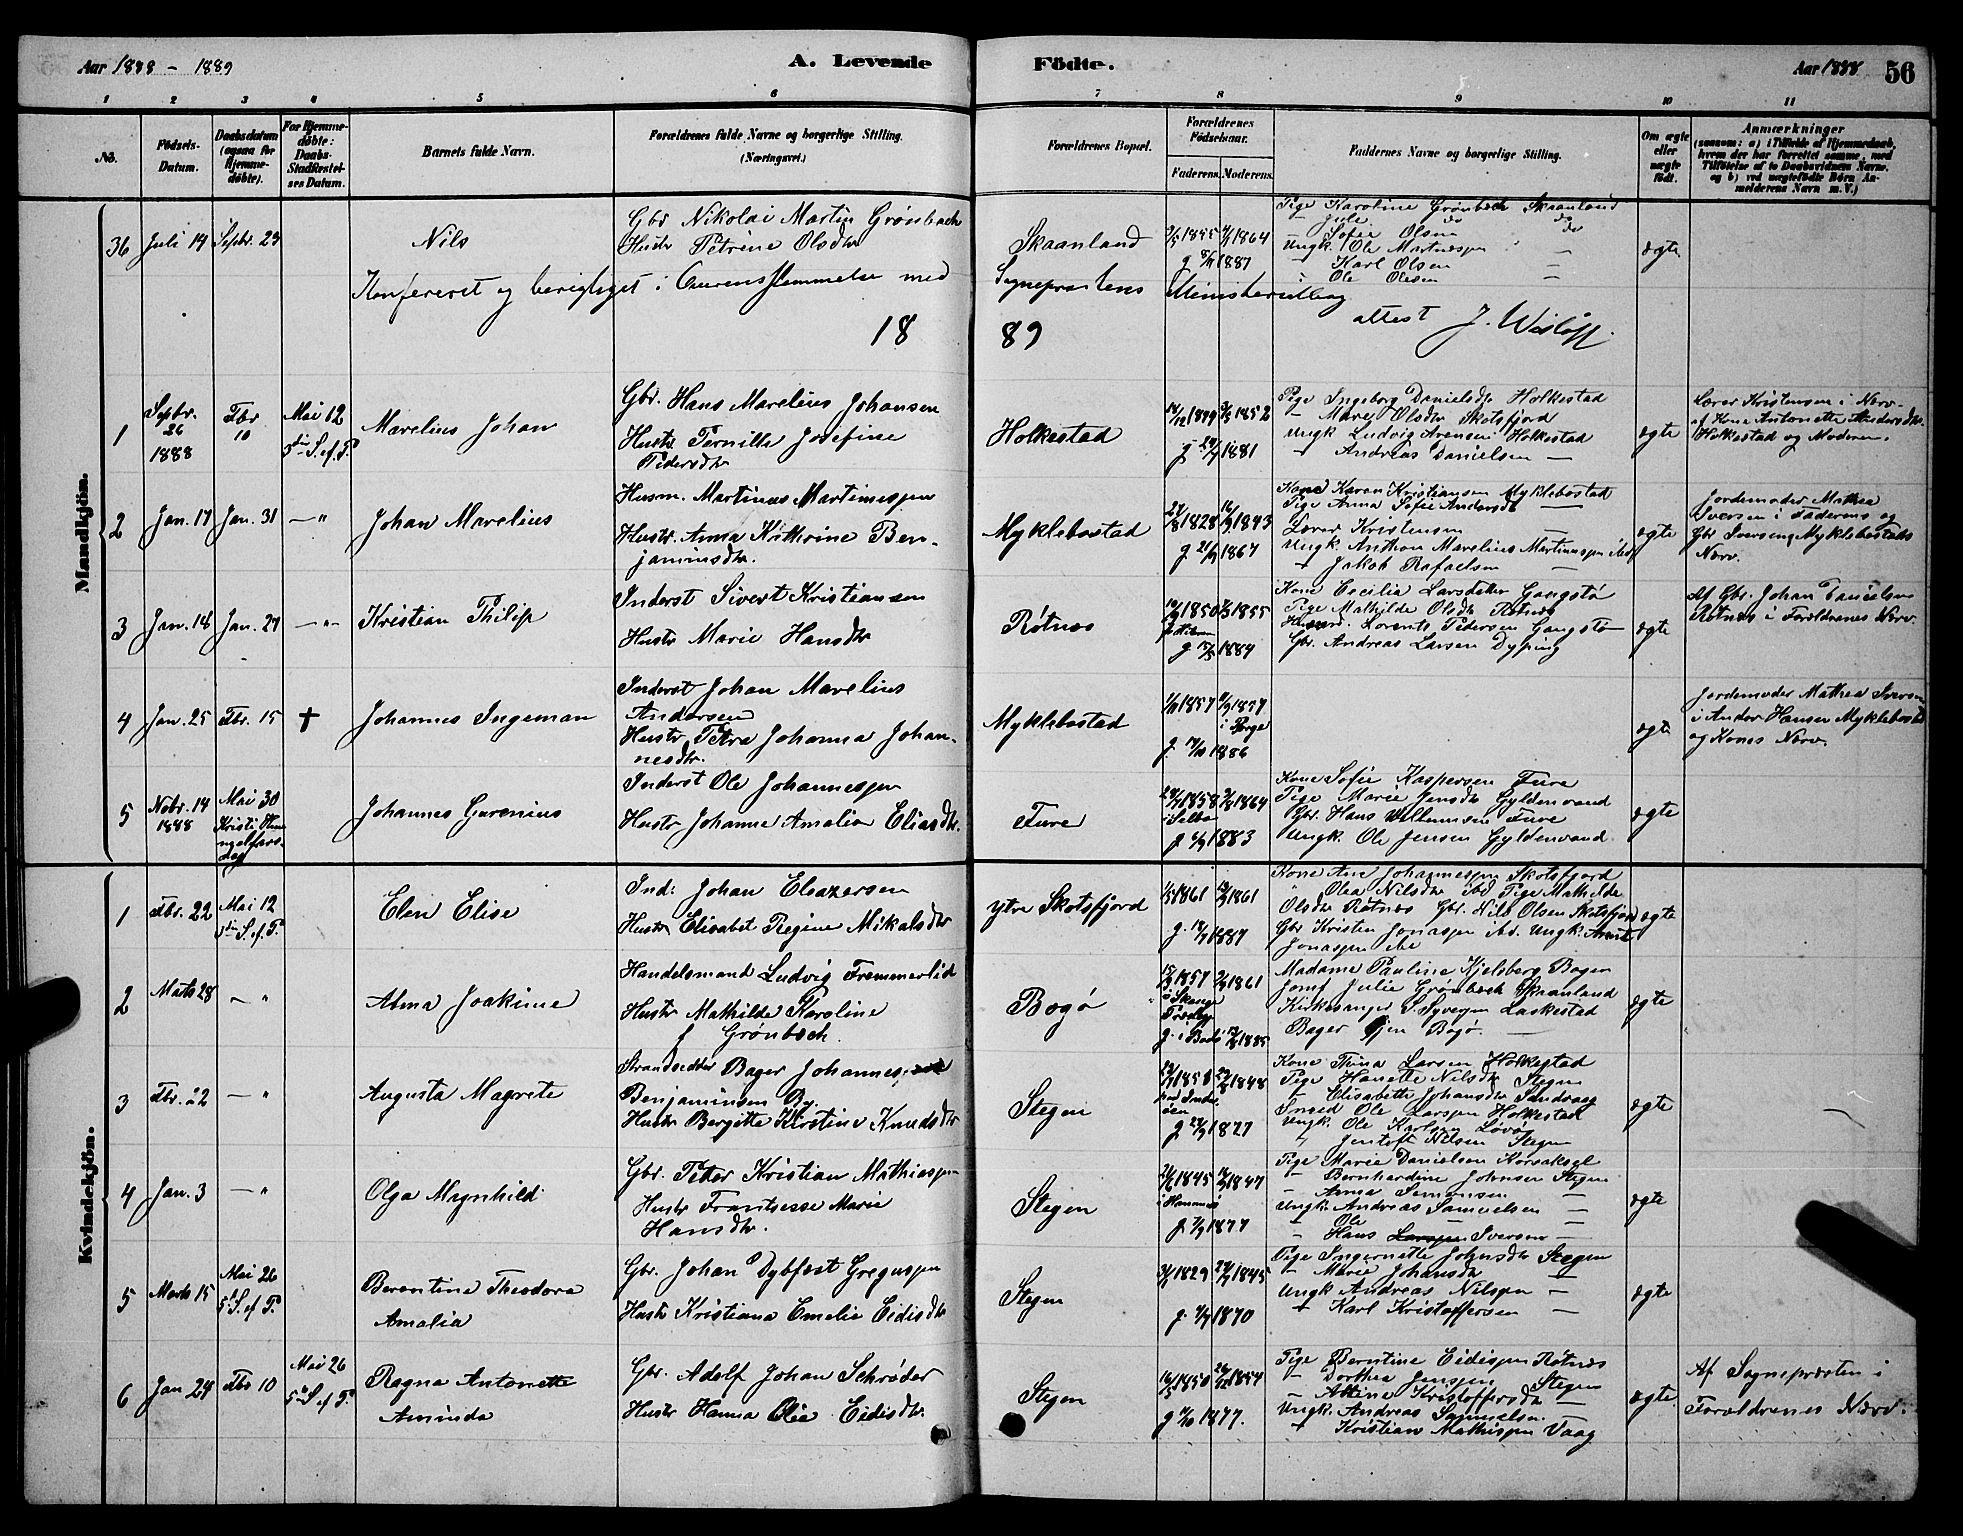 Aar 1888 - 1889
A. Levende
Födte.
Aar 1888
56
1 2 3 4 5 6 7 8 9 10 11
No.
Födsels-Datum.
Daabsdatum (ogsaa for Hjemme-döbte).
For Hjemme-döbte: Daabs-Stadfæstel-ses Datum.
Barnets fulde Navn.
Forældrenes fulde Navne og borgerlige Stilling. (Næringsvei.)
Forældrenes Bopæl.
Forældrenes Födselsaar.
Faderens. Moderens.
Faddernes Navne og borgerlige Stilling.
Om ægte eller uægte födt.
Anmærkninger
(saasom: a) i Tilfælde af Hjemmedaab, hvem der har forrettet samme, med Tilföielse af to Daabsvidners Navne. og b) ved uægtefödte Börn An-melderens Navn m. V.)
Mandkjön.
36 Juli 14 Septbr. 23
Nils
Gbr Nikolai Martin Grønbech
Hustr Petrine Olsdtr
Skaanland
1845 1864
g 1887
Pige Karoline Grønbech Skaanland
— Julie do
— Sofie Olsen do
Ungk Ole Martnussen —
— Karl Olsen —
Ole Olsen —
ægte
Konfereret og berigtiget i Overensstemmelse med Sogneprestens Ministerialbog
attest J. Wisløff.
18 89
1 Septbr. 26 1888
Fbr 10
Mai 12 5te S. ef. P.
Marelius Johan
Gbr. Hans Marelius Johansen
Hustr Pernille Josefine
Pedersdtr
Holkestad
1849 1852
g 1881
Pige Ingeborg Danielsdtr Holkestad
— Mare Olsdtr Skotsfjord
Ungk Ludvig Arensen Holkestad
— Andreas Danielsen —
ægte
Lærer Kristensen i Nærv.
af Kone Antonette Andersdtr
Holkestad og Moderen.
2 Jan. 17 Jan. 31 — "
Johan Marelius
Husm. Martinus Martinussen
Hustr. Anna Kathrine Ben-
jaminsdtr.
Myklebostad
1828 1843
g 1867
Kone Karen Kristiansen Myklebostad
Pige Anna Sofie Andersdtr —
Lærer Kristensen —
Ungk. Anthon Marelius Martinussen ibd
— Jakob Rafaelsen —
ægte
Jordemoder Mathea
Iversen i Faderens og
Gbr Iversens Myklebostads
Nærv.
3 Jan. 18 Jan. 27 — "
Kristian Philip
Inderst Sivert Kristiansen
Hustr Marie Hansdtr
Røtnes
1850 1855
g 1884
Kone Cecilia Larsdatter Gangstø
Pige Mathilde Olsdtr Røtnes
Husmd. Lorents Pedersen Gangstø
Gbr. Andreas Larsen Dyping
ægte
Af Gbr. Johan Danielsen
Røtnes i Forældrenes Nærv.
4 Jan. 25 Fbr. 15 †
Johannes Ingeman
Inderst Johan Marelius
Andersen
Hustr Petra Johanna Johan-
nesdtr.
Myklebostad
1857 1857
g. 1886
ægte
Jordemoder Mathea Iversen
i Andor Hansen Myklebostad
og Kones Nærv.
5 Novbr. 14 1888
Mai 30 Kristi Him-melfarts-dag
Johannes Garenius
Inderst Ole Johannessen
Hustr Johanne Amalia Eliasdtr.
Fure
1858 1864
g 1883
Kone Sofie Kaspersen Fure
Pige Marie Jensdtr Gyldenvand
Gbr. Hans Villumsen Fure
Ungk. Ole Jensen Gyldenvand
ægte
Kvindekjön.
1 Fbr. 22 Mai 12 3die S. ef. P.
Elen Elise
Ind. Johan Eleazersen
Hustr Elisabet Regine Mikalsdtr
ytre Skotsfjord
1861 1861
g. 1887
Kone Ane Johannessen Skotsfjord
" Olea Nilsdtr ibd Pige Mathilde
Olsdtr Røtnes Gbr. Nils Olsen Skotsfjord
Gbr Kristen Jonassen ibd. Ungk. Arent
Jonassen ibd
ægte
2 Marts 28 — "
Alma Joakime
Handelsmand Ludvig Fremmerlid
Hustr Mathilde Karoline
f Grønbech.
Bogø
1857 1861
g. i Bodø 1885
Madame Pauline Kjelsberg Bogen
Jomf Julie Grønbech Skaanland
Kirkesanger S. Syversen Laskestad
Bager Bogø. —
ægte
3 Fbr. 22 — "
Augusta Magrete
Strandsidder Bager Johannes
Benjaminsen By.
Hustr Bergitte Kirstine Knudsdtr
Stegen
1858 1848
g 1827
Kone Thina Larsen Holkestad
Pige Hanette Nilsdtr Stegen
— Elisabette Johansdtr Sandvaag
Smed Ole Larsen Holkestad
Ungk. Ole Karlsen Løvøi
" Jentoft Nilsen Stegen
ægte
4 Jan. 3 — "
Olga Magnhild
Gbr. Peter Kristian Mathiassen
Hustr Frantsesse Marie
Hansdtr.
Stegen
1845 1847
g. 1877
Pige Marie Danielsen Korsaksel
— Bernhardine Johnsen Stegen
— Anna Simonsen —
Ungk. Andreas Samuelsen —
— Ole —
— Hans Larssen Iversen —
ægte
5 Marts 15 Mai 26 5te S. ef P.
Berentine Theodora
Amalia
Gbr. Johan Dybfest Gregussen
Hustr Kristiana Emelie Eidisdtr
Stegen
1829 1845
g. 1870
Pige Ingernette Johnsdtr Stegen
— Marie Johansdtr —
Ungk Andreas Nilssen —
— Karl Kristoffersen —
ægte
6 Jan 24 Fbr 10 Mai 26 5te S. ef P.
Ragna Antonette
Aminda
Gbr. Adolf Johan Schrøder
Hustr Hanna Olea Eidisdtr.
Stegen
1850 1854
g 1877.
Pige Berntine Eidissen Røtnes
— Dorthea Jenssen Stegen
— Altine Kristoffersdtr —
Ungk. Andreas Samuelsen —
— Kristian Mathissen Vaag
ægte
Af Sognepresten i
Forældrenes Nærv.